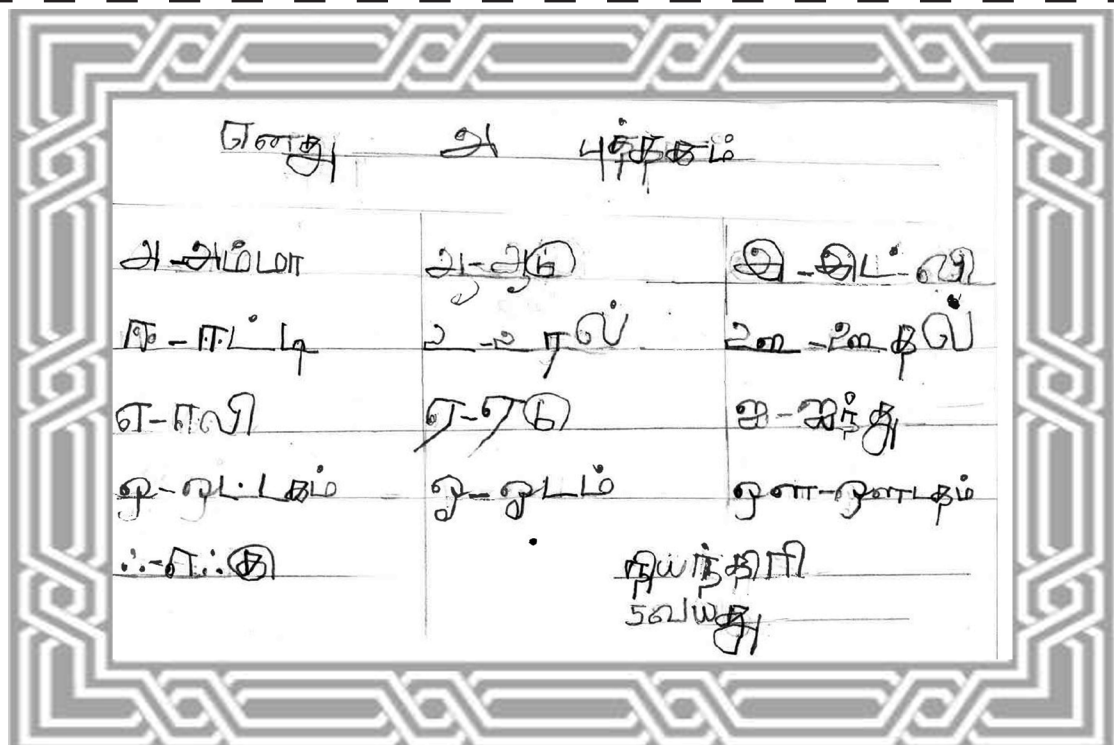 எனது அ புத்தகம்
அ-அம்மா ஆ-ஆடு இ-இட்லி
ஈ-ஈட்டி உ-உரல் ஊ-ஊதல்
எ-எலி ஏ-ஏடு ஐ-ஐந்து
ஒ-ஒட்டகம் ஓ-ஓட்டம் ஔ-ஔடதம்
ஃ-எஃகு
5வயது